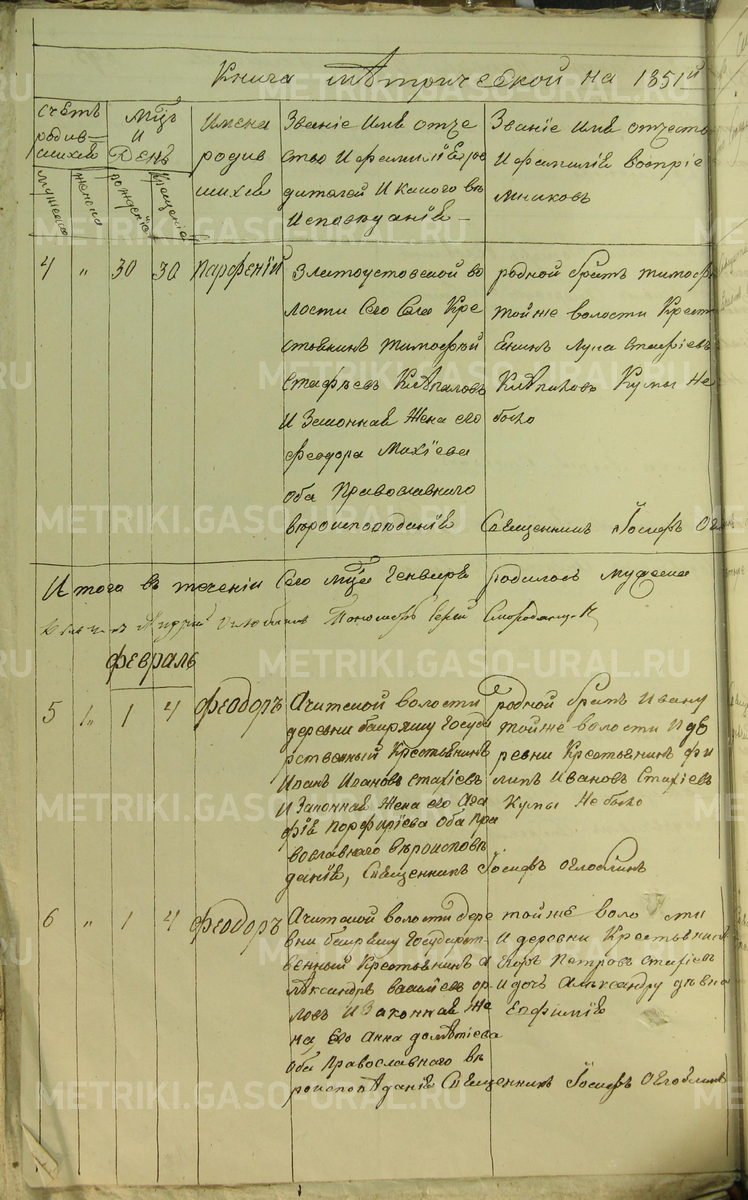 Книга мѣтрической на 1851й
счетъ родив-шихсѣ
мужеска
женска
мцъ и Денѣ
рожденіѣ
крещеніѣ
Имена родив шихсѣ
Званіе Имѣ отче
ство И фамиліѣ ро
дителей И какого вѣ
Исповѣданіѣ –
Званіе Имѣ отчество
И фамиліѣ воспріе
мниковъ
4 " 30 30 Парфеній
Златоустовской во
лости Сего Села Кре
стьянинъ Тимофѣй
Стафѣевъ Клѣпаловъ
И Законнаѣ Жена его
Феодора Махіева
оба Православнаго
вѣроисповѣданіѣ
родной братъ тимофѣ
той же волости Крест
Енинъ Лука Стафіевъ
Клѣпаловъ Кумы не
было
Священникъ Іосифъ
Итого въ теченіи Сего мца Генварѣ родилось мужеска
Андрей Пономарь Сергей
Февраль
5 " 1 4 Феодоръ
Ачитской волости
деревни баиряшу Госуда
рственный Крестьянинъ
Иванъ Ивановъ Стахіевъ
И Законная Жена его Ага
фіѣ Порфиріева оба Пра
вославнаго вѣроисповѣ
даніѣ, Священникъ Іосифъ Оглоблинъ
родной братъ Ивану
той же волости И дѣ
ревни Крестьянинъ фи
липъ Ивановъ Стахіевъ
Кумы Не было
6 " 1 4 Феодоръ
Ачитской волости Дере
вни баиряшу Государст-
венный Крестьянинъ А
лѣксандръ василіевъ ор
ловъ И Законнаѣ Же
на Его Анна домѣтіева
Оба Православнаго вѣ
роисповѣданіѣ Священникъ Іосифъ Оглоблинъ
той же воло сти
И деревни Крестьянинъ
Егоръ Петровъ Стахіевъ
И дочь Александру дѣвка
Евфиміѣ
METRIKI.GASO-URAL.RU